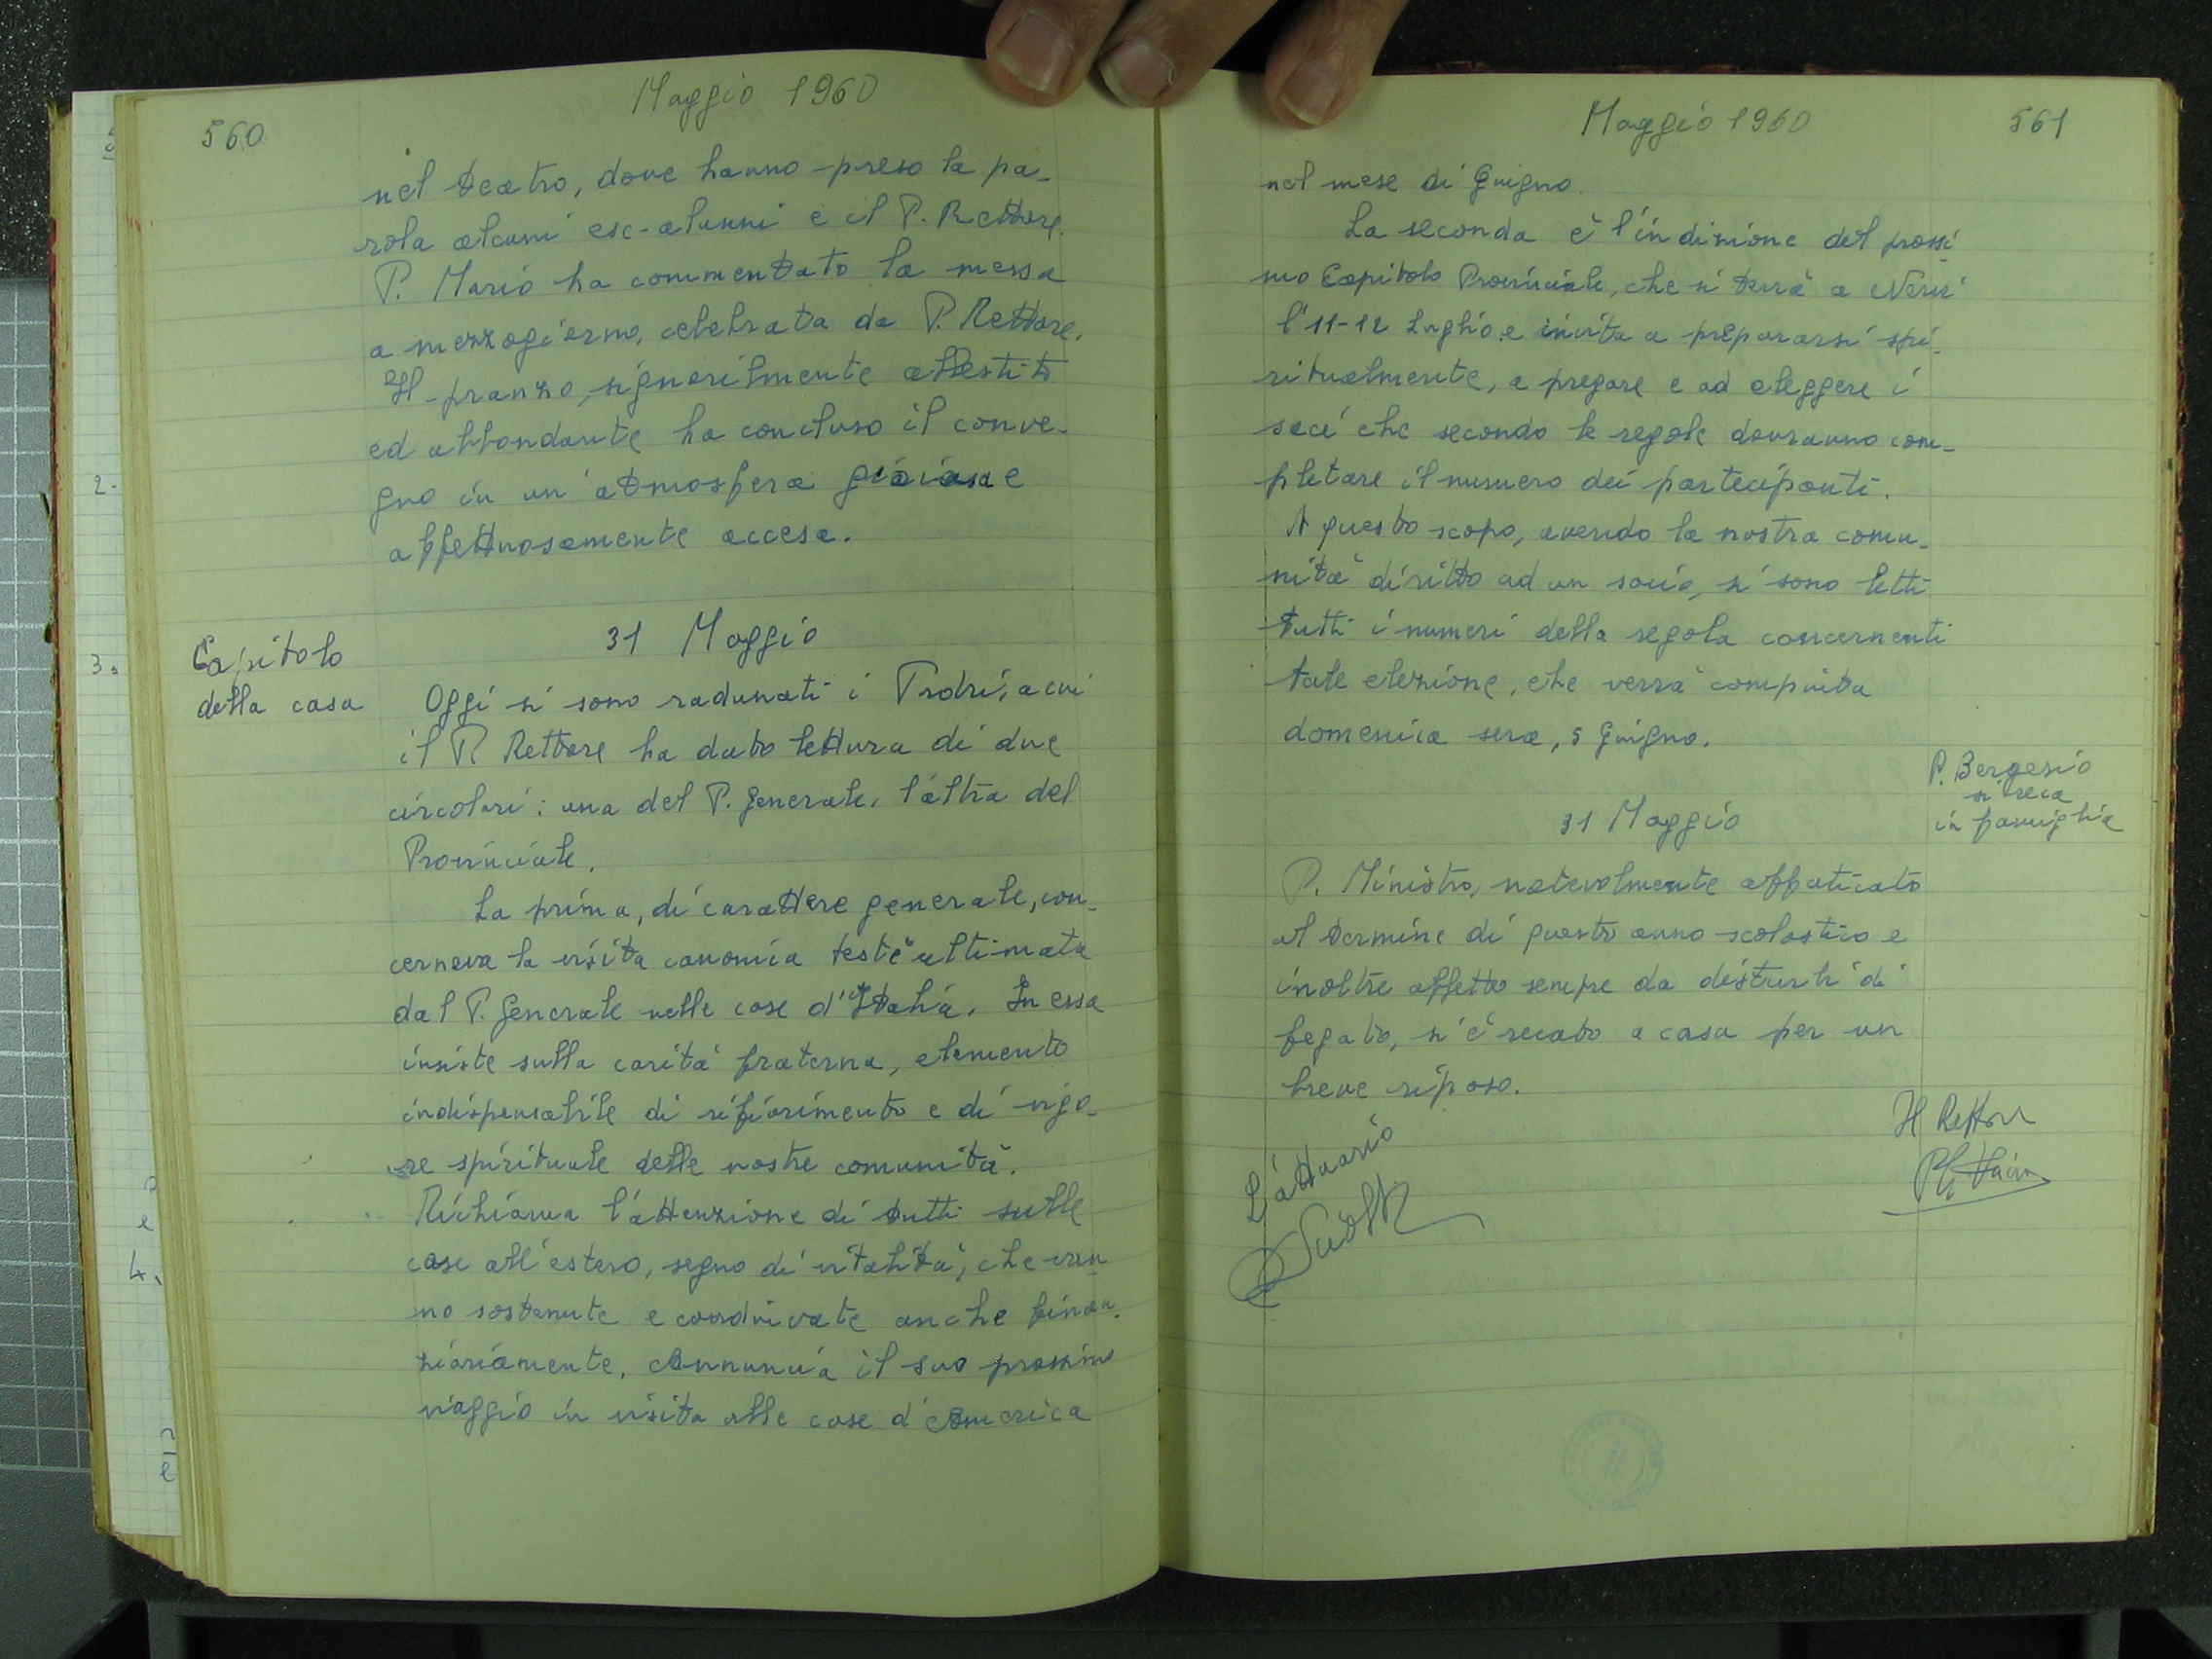 560
Maggio 1960
nel teatro, dove hanno preso la pa-
rola alcuni esc-alunni e il P. Rettore.
P. Mario ha commentato la messa
a mezzogiorno, celebrata da P. Rettore.
Il pranzo, signorilmente allestito
ed abbondante ha concluso il conve-
gno in un'atmosfera gioiosa e
affettuosamente accesa.
31 Maggio
Capitolo
della casa
Oggi si sono radunati i Padri, a cui
il P. Rettore ha dato lettura di due
circolari: una del P. Generale, l'altra del
Provinciale.
La prima, di carattere generale, con-
cerneva la visita canonica testè ultimata
dal P. Generale nelle case d'Italia. In essa
insiste sulla carità fraterna, elemento
indispensabile di rifiorimento e di vigo-
re spirituale delle nostre comunità.
Richiama l'attenzione di tutti sulle
case all'estero, segno di vitalità, che van
no sostenute e coadiuvate anche finan-
ziariamente. Annuncia il suo prossimo
viaggio in visita alle case d'America
2.
3.
4.
Maggio 1960
561
nel mese di Giugno.
La seconda è l'indizione del prossi-
mo Capitolo Provinciale, che si terrà a Nervi
l'11-12 Luglio e invita a prepararsi spi-
ritualmente, a pregare e ad eleggere i
soci che secondo le regole dovranno com-
pletare il numero dei partecipanti.
A questo scopo, avendo la nostra comu-
nità diritto ad un socio, si sono letti
tutti i numeri della regola concernenti
tale elezione, che verrà compiuta
domenica sera, 5 Giugno.
P. Bergesio
si reca
in famiglia
31 Maggio
P. Ministro, notevolmente affaticato
al termine di questo anno scolastico e
inoltre affetto sempre da disturbi di
fegato, si è recato a casa per un
breve riposo.
L'attuario
Il Rettore